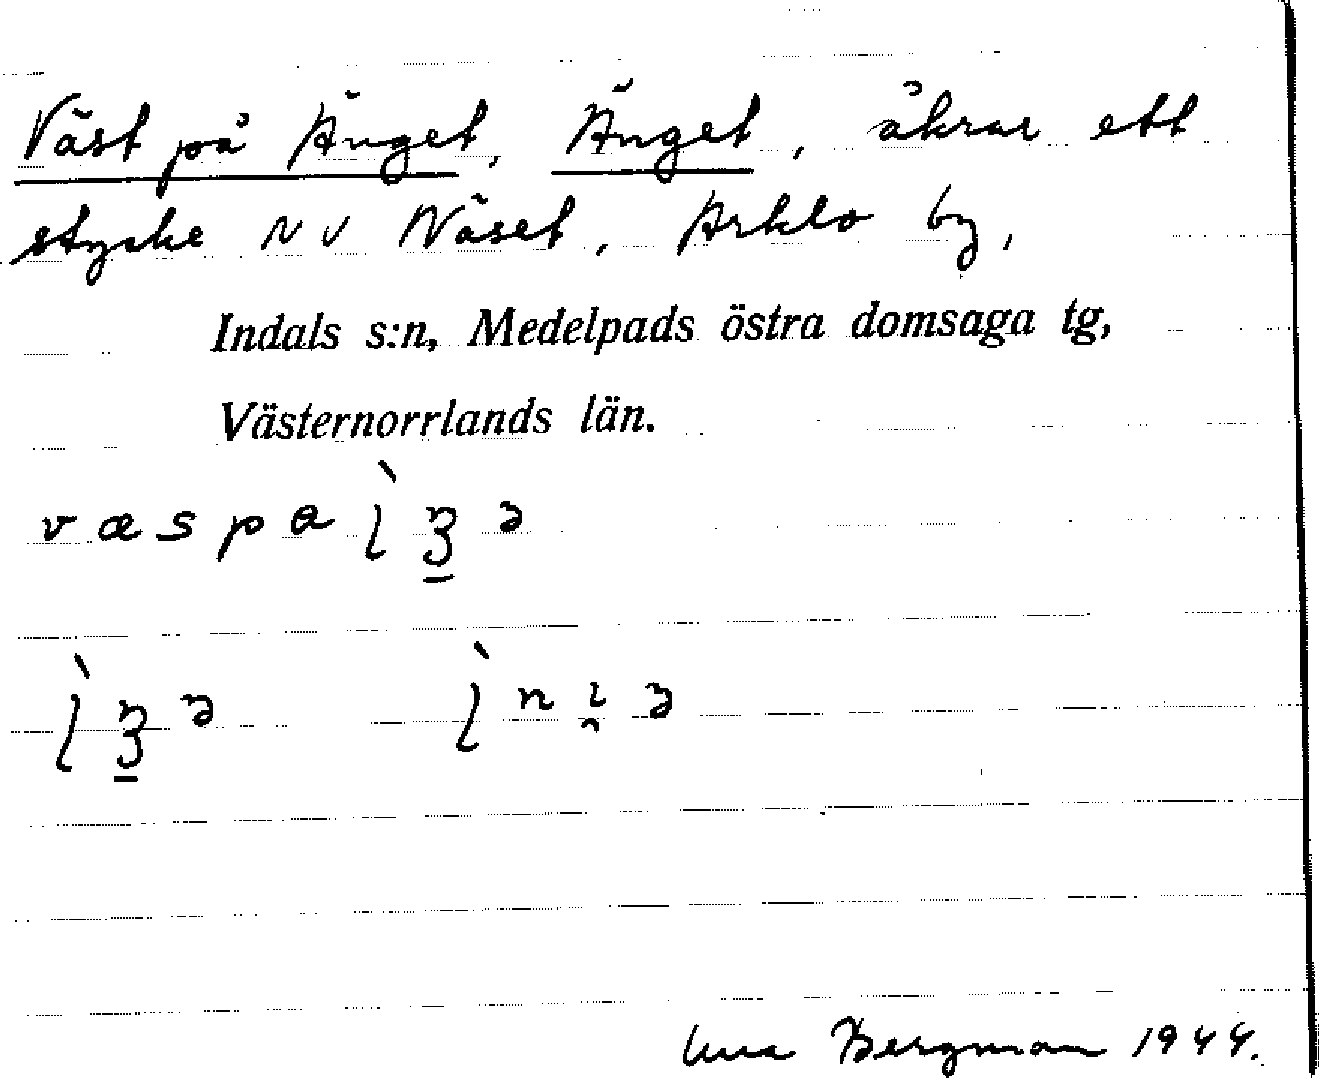 Väst på Änget, Änget, åkrar ett
stycke NV Näset, Arklo by,
Indals s:n, Medelpads östra domsaga tg,
Västernorrlands län.
Bergman 1944.